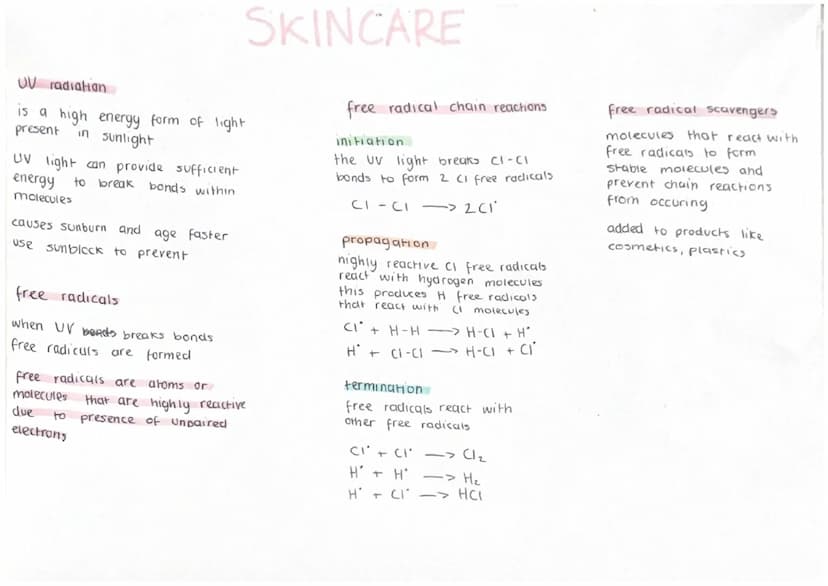 SKINCARE
UV radiation
is a high energy form of light
present in sunlight
UV light can provide sufficient
energy to break bonds within
molecules
causes sunburn and age faster
use sunblock to prevent
free radicals
when UV bonds breaks bonds
free radicals are formed
free radicals are atoms or
molecules that are highly reactive
due to presence of unpaired
electrons
free radical chain reactions
initiation
the UV light breaks Cl-Cl
bonds to form 2 Cl free radicals
Cl - Cl —> 2Cl•
propagation
highly reactive Cl free radicals
react with hydrogen molecules
this produces H free radicals
that react with Cl molecules
Cl• + H-H —> H-Cl + H•
H• + Cl-Cl —> H-Cl + Cl•
termination
free radicals react with
other free radicals
Cl• + Cl• —> Cl₂
H• + H• —> H₂
H• + Cl• —> HCl
free radical scavengers
molecules that react with
free radicals to form
stable molecules and
prevent chain reactions
from occuring
added to products like
cosmetics, plastics